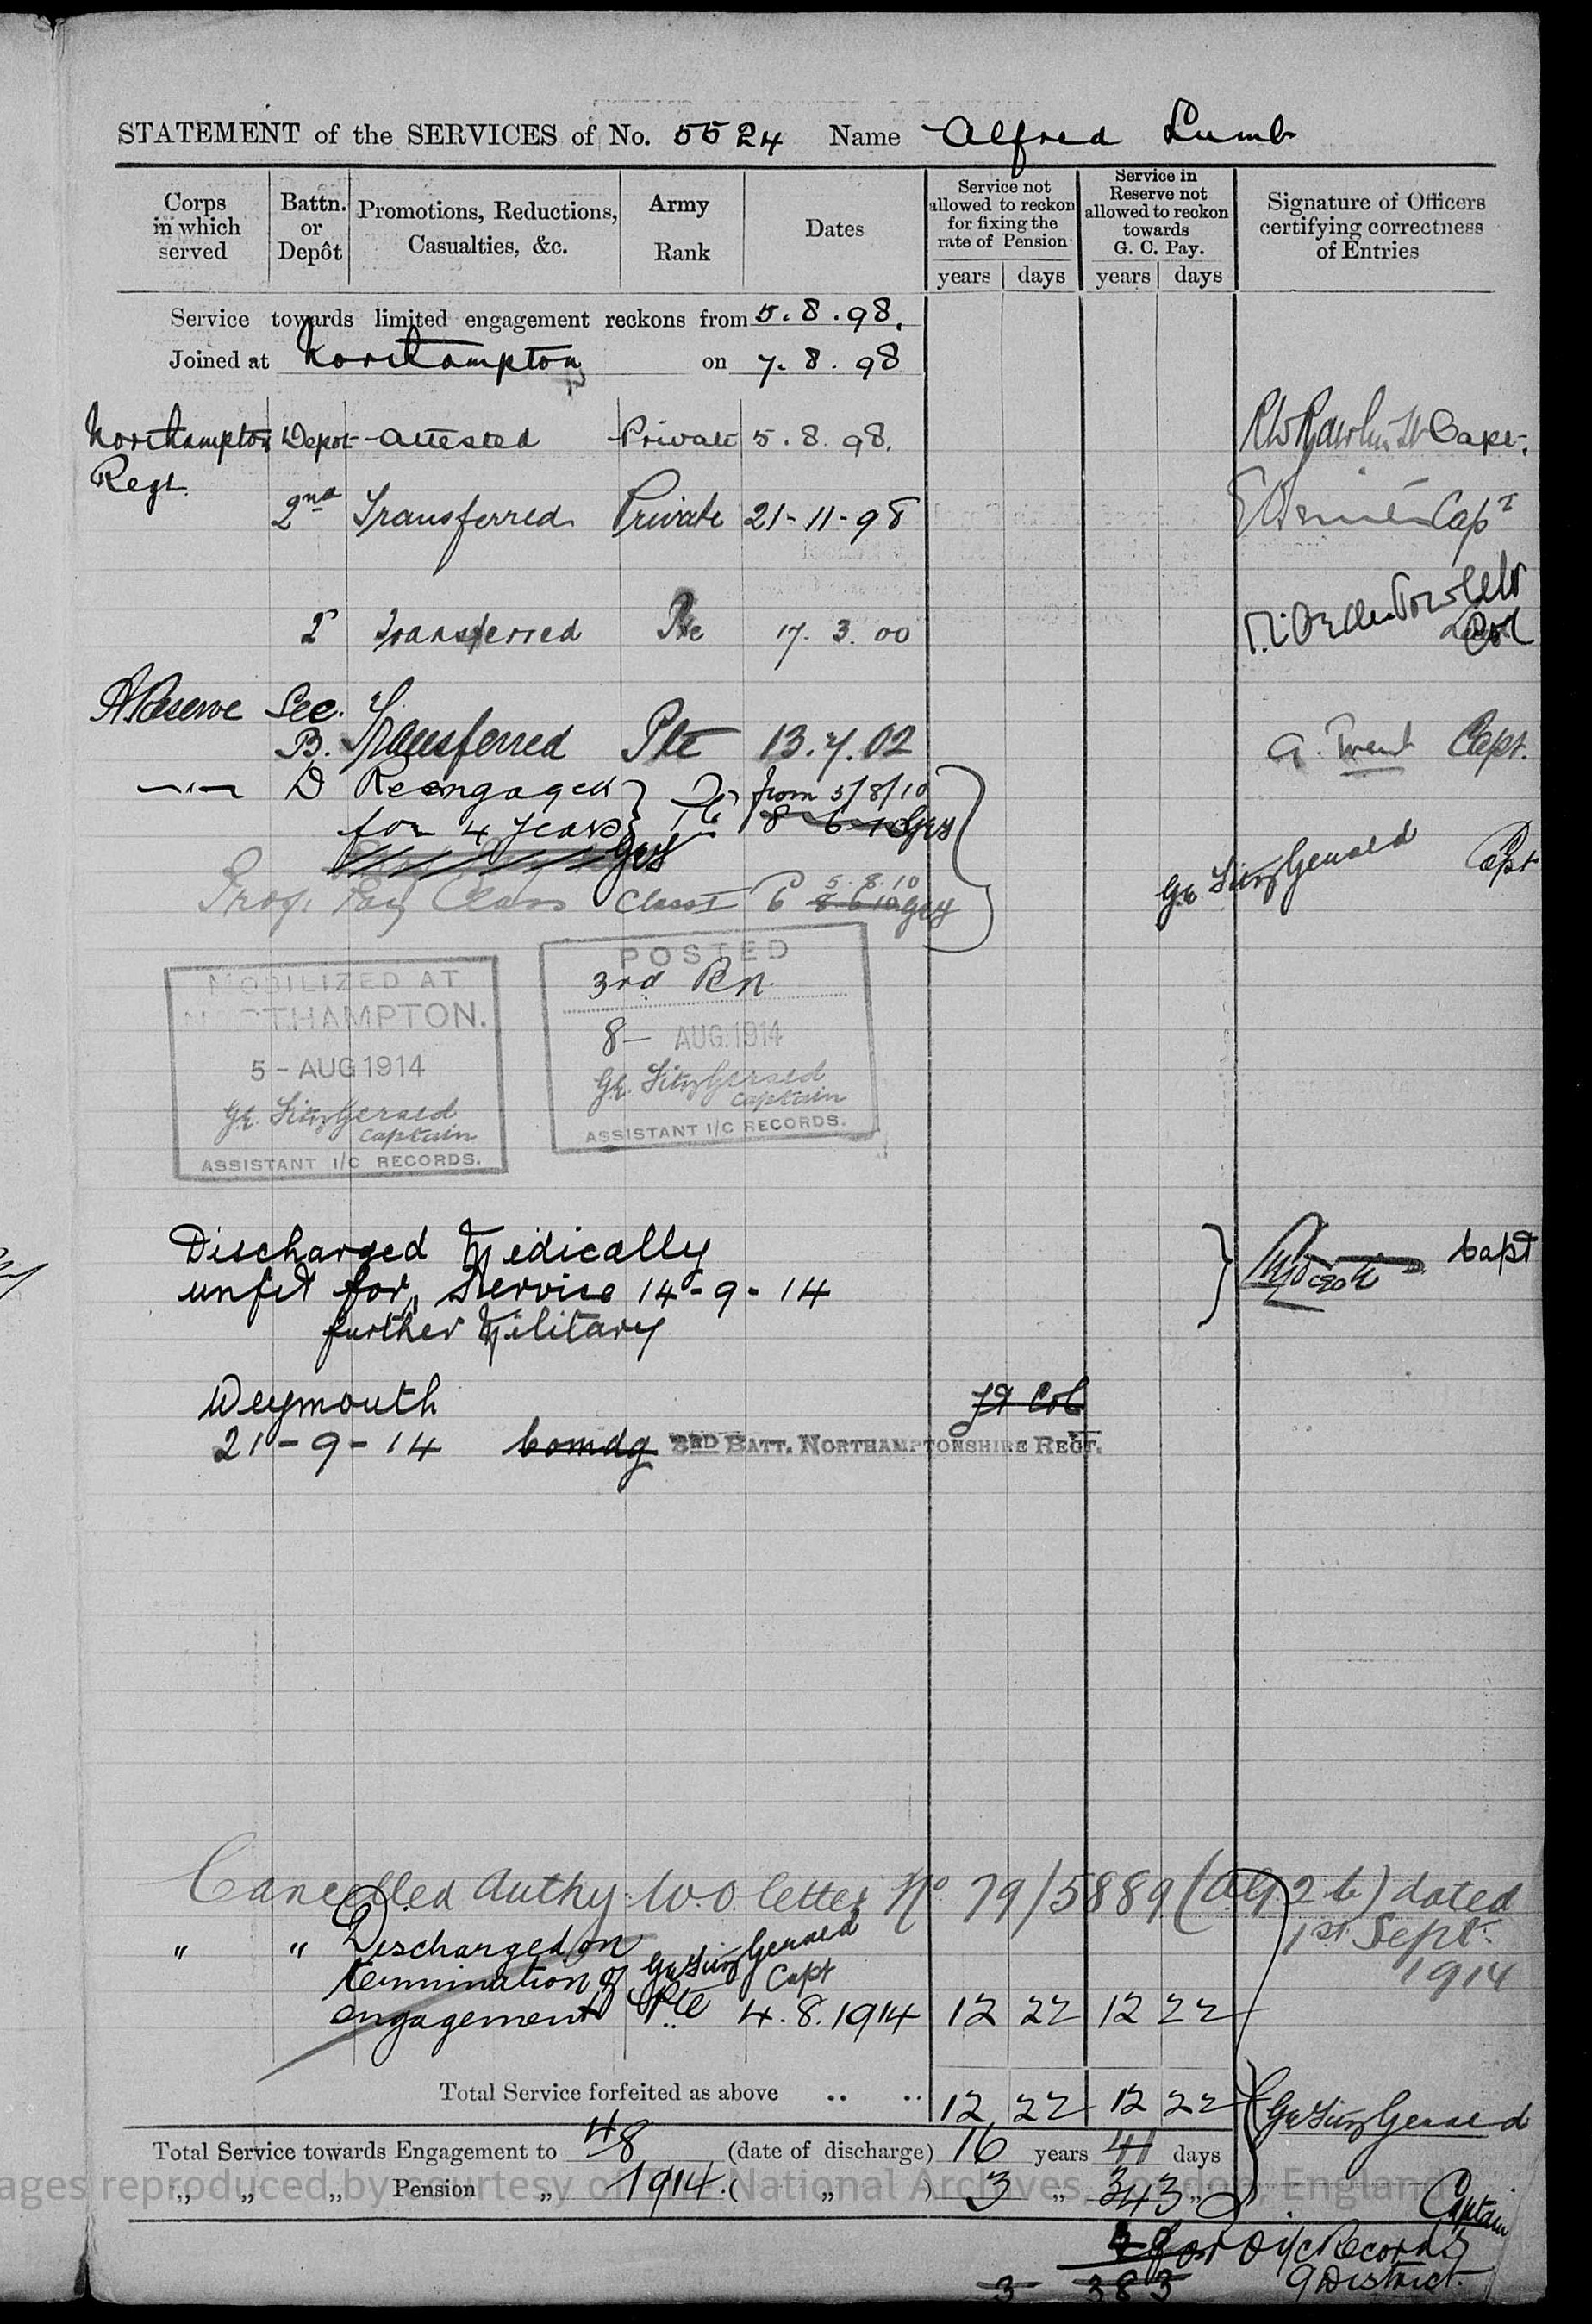 STATEMENT of the SERVICES of No. 5524 Name Alfred Lumb
Corps in which served
Battn. or Depôt
Promotions, Reductions, Casualties, &c.
Army Rank
Dates
Service not allowed to reckon for fixing the rate of Pension
years days
Service in Reserve not allowed to reckon towards G. C. Pay.
years days
Signature of Officers certifying correctness of Entries
Service towards limited engagement reckons from 5.8.98.
Joined at Northampton on 7.8.98
Northampton Depot Attested Private 5.8.98. Capt.
Regt.
2nd Transferred Private 21-11-98 Capt
2 transferred Pte 17.3.00
Col
A. Reserve Sec.
B. Transferred Pte 13.7.02 Capt.
D Reengaged from 5/8/10
for 4 years 8 6 10
GE FitzGerald Capt
5.8.10
Prog. Pay Class Class I 6 8 6 10
MOBILIZED AT
NORTHAMPTON.
5 - AUG 1914
GE. FitzGerald
Captain
ASSISTANT I/C RECORDS.
POSTED
3rd Bn.
8 - AUG. 1914
GE. FitzGerald
Captain
ASSISTANT I/C RECORDS.
Discharged Medically
unfit for Service 14-9-14 Capt
further Military
Weymouth Lt Col
21-9-14 Comdg 3RD BATT. NORTHAMPTONSHIRE REGT.
Cancelled Authy W.O. letter No 79/5889 (A.G. 2 b) dated
1st Sept.
1914
" " Discharged on
termination of GE FitzGerald Capt
engagement Pte 4.8.1914 12 22 12 22
Total Service forfeited as above .. .. 12 22 12 22
GE FitzGerald
Total Service towards Engagement to 4 8 (date of discharge) 16 years 41 days
" " " Pension " 1914. ( " ) 3 " 343 "
Captain
for O i/c Records
9 District.
3 383
ages reproduced by courtesy of The National Archives, London, England